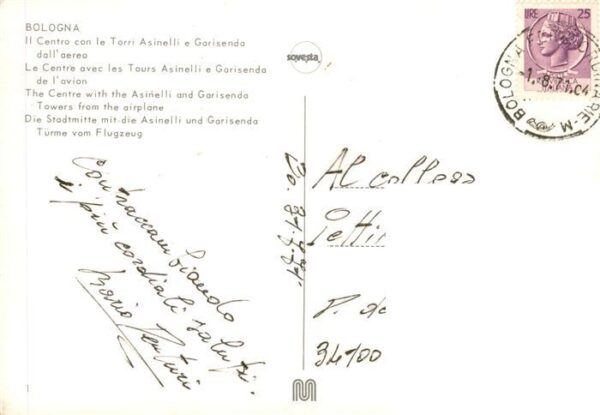 BOLOGNA
Il Centro con le Torri Asinelli e Garisenda
dall'aereo
Le Centre avec les Tours Asinelli e Garisenda
de l'avion
The Centre with the Asinelli and Garisenda
Towers from the airplane
Die Stadtmitte mit die Asinelli und Garisenda
Türme vom Flugzeug
sovesta
LIRE 25
BOLOGNA
-1.-8.71.04
Contraccambiando
i più cordiali saluti.
Mario
Bo.
Al collega
P. de
34100
1